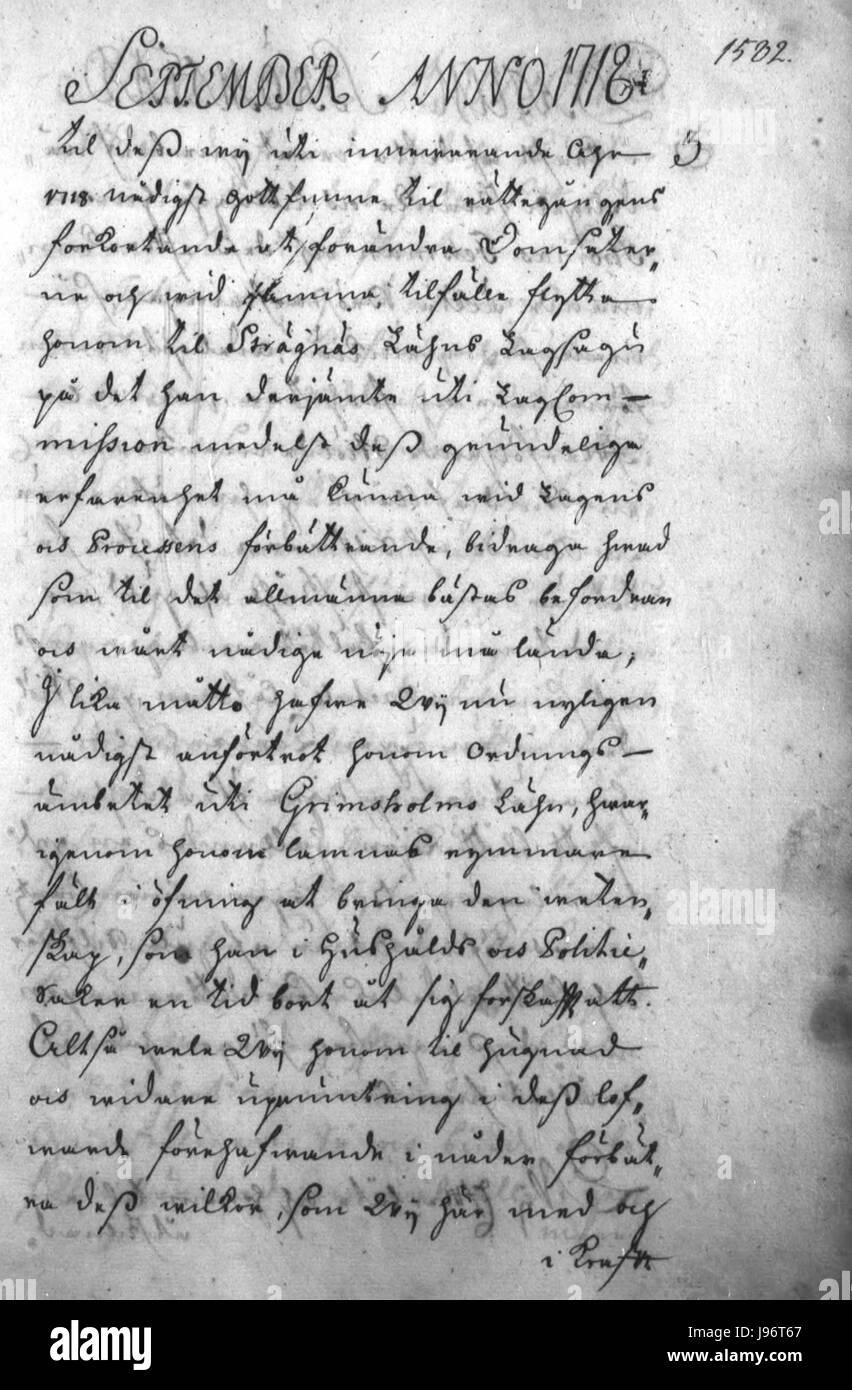 1532.
SEPTEMBER ANNO 1718
5
til deß wij uti innewarande Ahr
1718 nådigst gottfunne til rättegångens
förkortande at förändra Domsater„
ne och wid samma tilfälle flytta
honom til Strägnäs Lähns Lagsagu
på det han derjämte uti LagCom—
mission medelst deß grundelige
erfarenhet må kunna wid Lagens
och Processens förbättrande, bidraga hwad
som til det allmänna bästas befordran
och wårt nådige nöje må lända;
I lika måtto hafwe Wij nu nyligen
nådigst anförtrot honom Ordnings—
ämbetet uti Grimsholms Lähn, hwar„
igenom honom lämnas rymmare
fält i öfning at bringa den weten„
skap, som han i Hushålds och Politie„
Saker en tid bort åt sig förskaffatt.
Altså wele Wij honom til hugnad
och widare upmuntring i deß lof„
warde förehafwande i nåder förbät„
ra deß wilkor, som Wij här med och
i Krafft
alamy
Image ID: J96T67
www.alamy.com